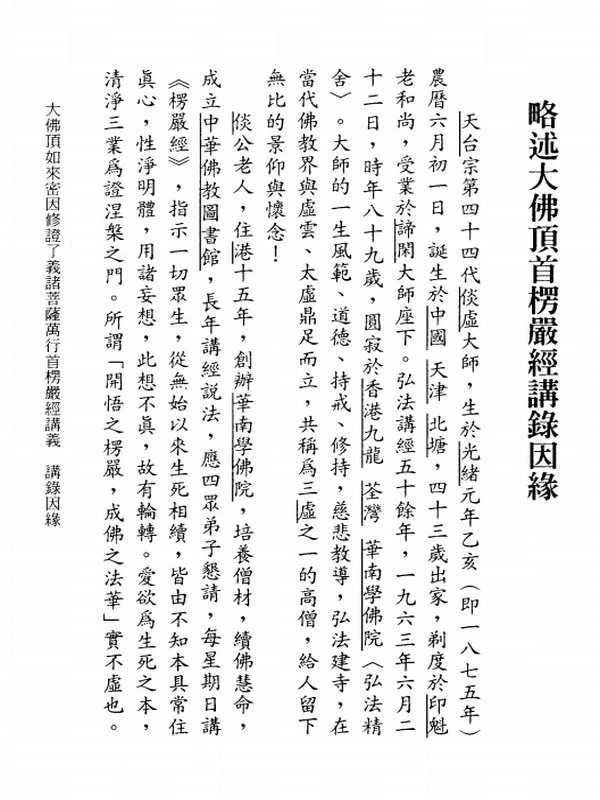 略述大佛頂首楞嚴經講錄因緣
天台宗第四十四代倓虛大師，生於光緒元年乙亥（即一八七五年）
農曆六月初一日，誕生於中國 天津 北塘，四十三歲出家，剃度於印魁
老和尚，受業於諦閑大師座下。弘法講經五十餘年，一九六三年六月二
十二日，時年八十九歲，圓寂於香港九龍 荃灣 華南學佛院（弘法精
舍）。大師的一生風範、道德、持戒、修持，慈悲教導，弘法建寺，在
當代佛教界與虛雲、太虛鼎足而立，共稱爲三虛之一的高僧，給人留下
無比的景仰與懷念！
倓公老人，住港十五年，創辦華南學佛院，培養僧材，續佛慧命，
成立中華佛教圖書館，長年講經說法，應四眾弟子懇請，每星期日講
《楞嚴經》，指示一切眾生，從無始以來生死相續，皆由不知本具常住
眞心，性淨明體，用諸妄想，此想不眞，故有輪轉。愛欲爲生死之本，
清淨三業爲證涅槃之門。所謂「開悟之楞嚴，成佛之法華」實不虛也。
大佛頂如來密因修證了義諸菩薩萬行首楞嚴經講義 講錄因緣